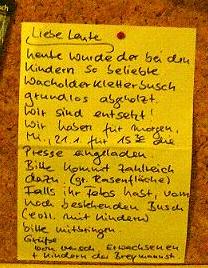 Liebe Leute
heute wurde der bei den
Kindern so beliebte
Wacholder Kletterbusch
grundlos abgeholzt.
Wir sind entsetzt!
Wir haben für morgen,
Mi., 21.1 für 15 die
Presse eingeladen.
Bitte kommt zahlreich
dazu (gr. Rasenfläche)
Falls ihr Fotos habt, vom
noch bestehenden Busch
(evtl. mit Kindern)
bitte mitbringen.
Grüße
von Erwachsenen
+ Kindern der Bregmannstr